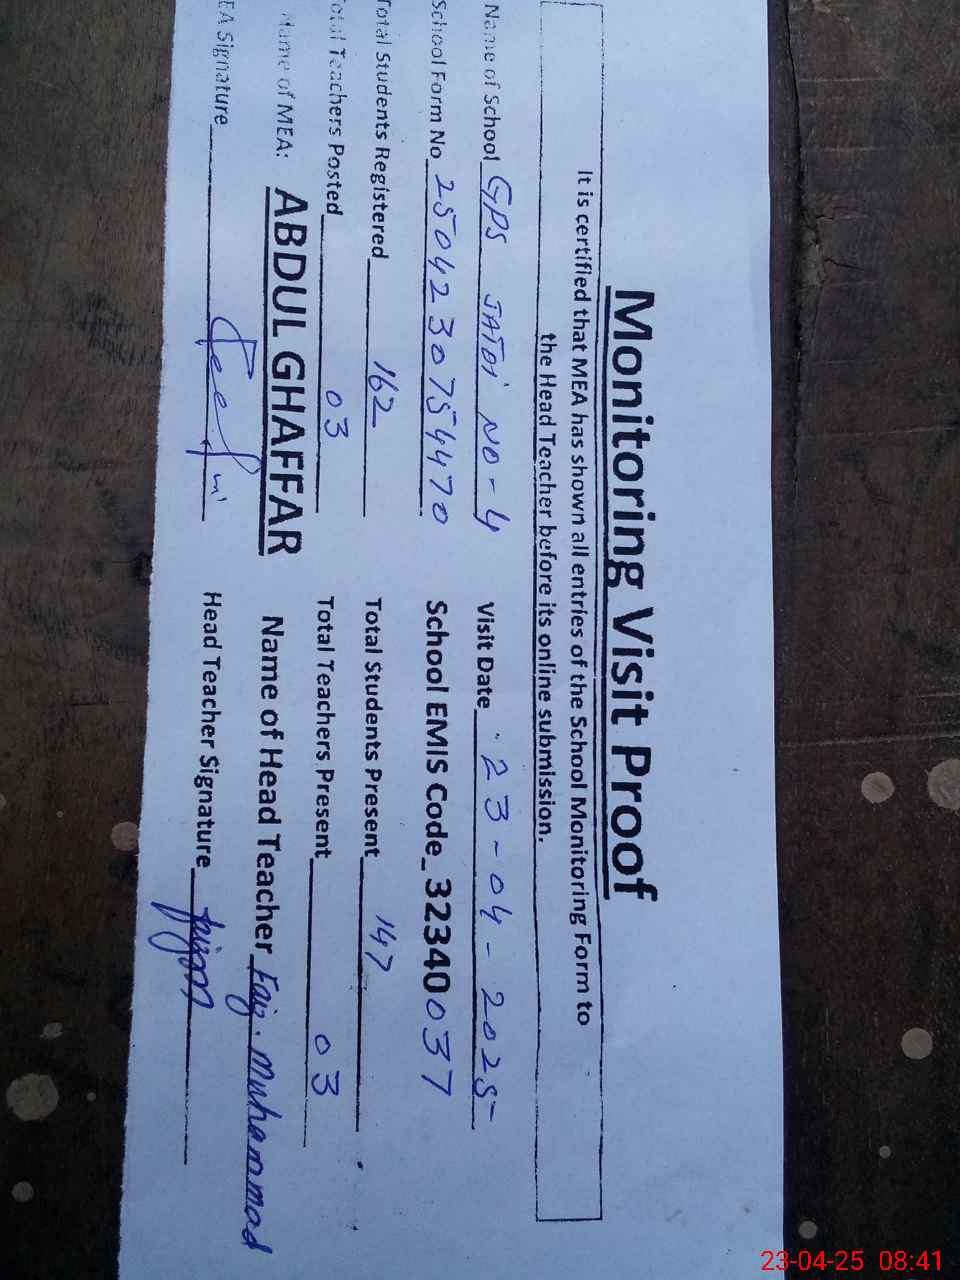 Monitoring Visit Proof
It is certified that MEA has shown all entries of the School Monitoring Form to
the Head Teacher before its online submission.
Name of School GPS JATOi NO-4 Visit Date 23-04-2025
School Form No 2504230754470 School EMIS Code_32340037
Total Students Registered 162 Total Students Present 147
Total Teachers Posted 03 Total Teachers Present 03
Name of MEA: ABDUL GHAFFAR Name of Head Teacher Faiz. Muhammad
EA Signature Head Teacher Signature
23-04-25 08:41